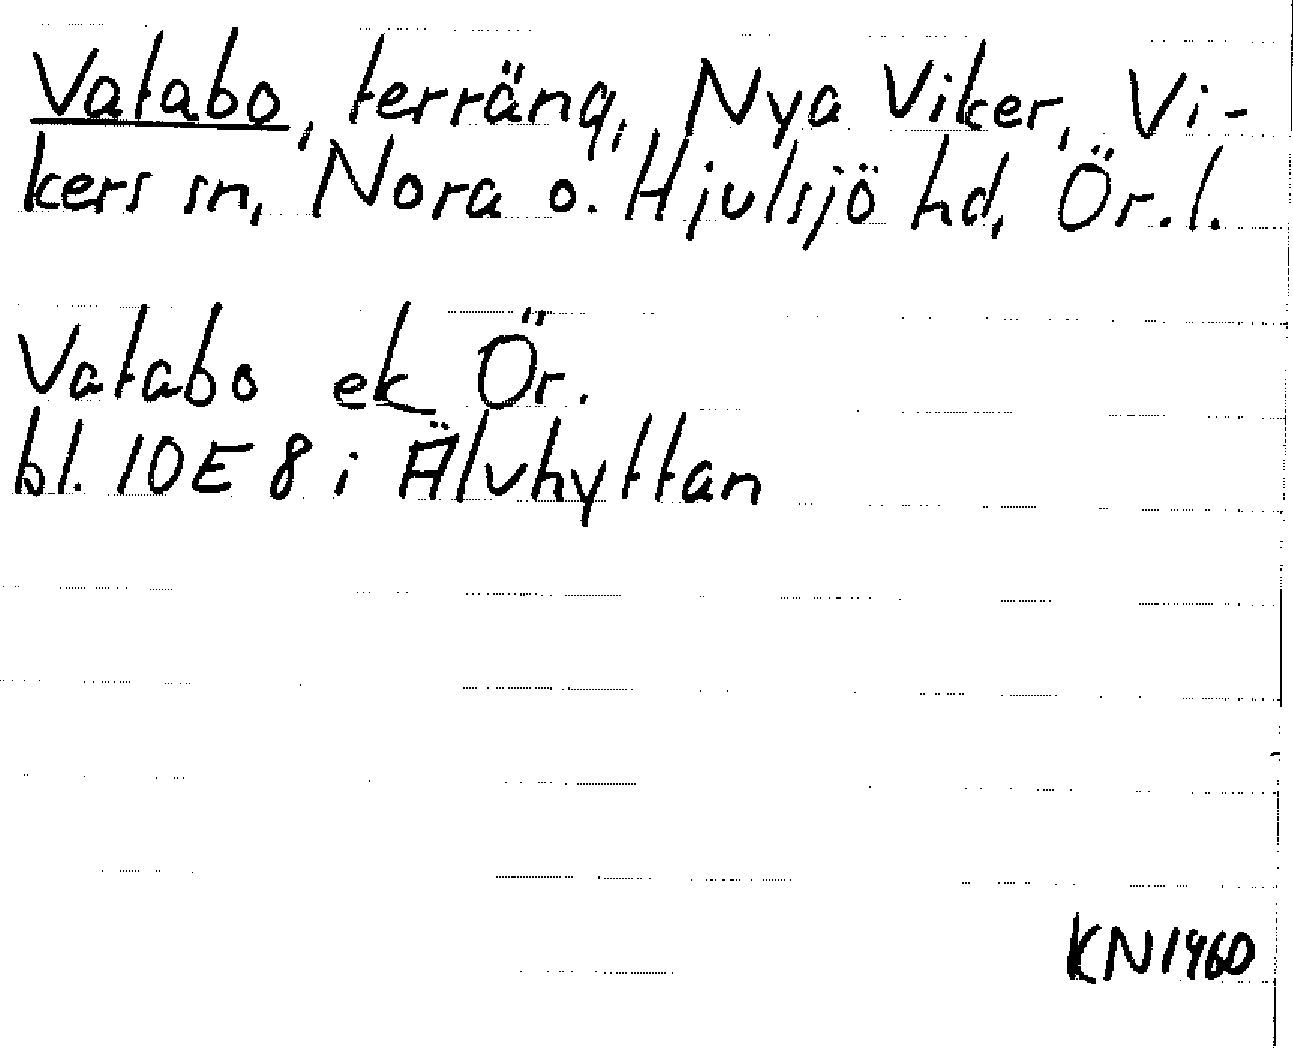 Vatabo, terräng, Nya Viker, Vi-
kers sn, Nora o. Hjulsjö hd, Ör. l.
Vatabo ek Ör.
bl. 10E8i Älvhyttan
KN1960